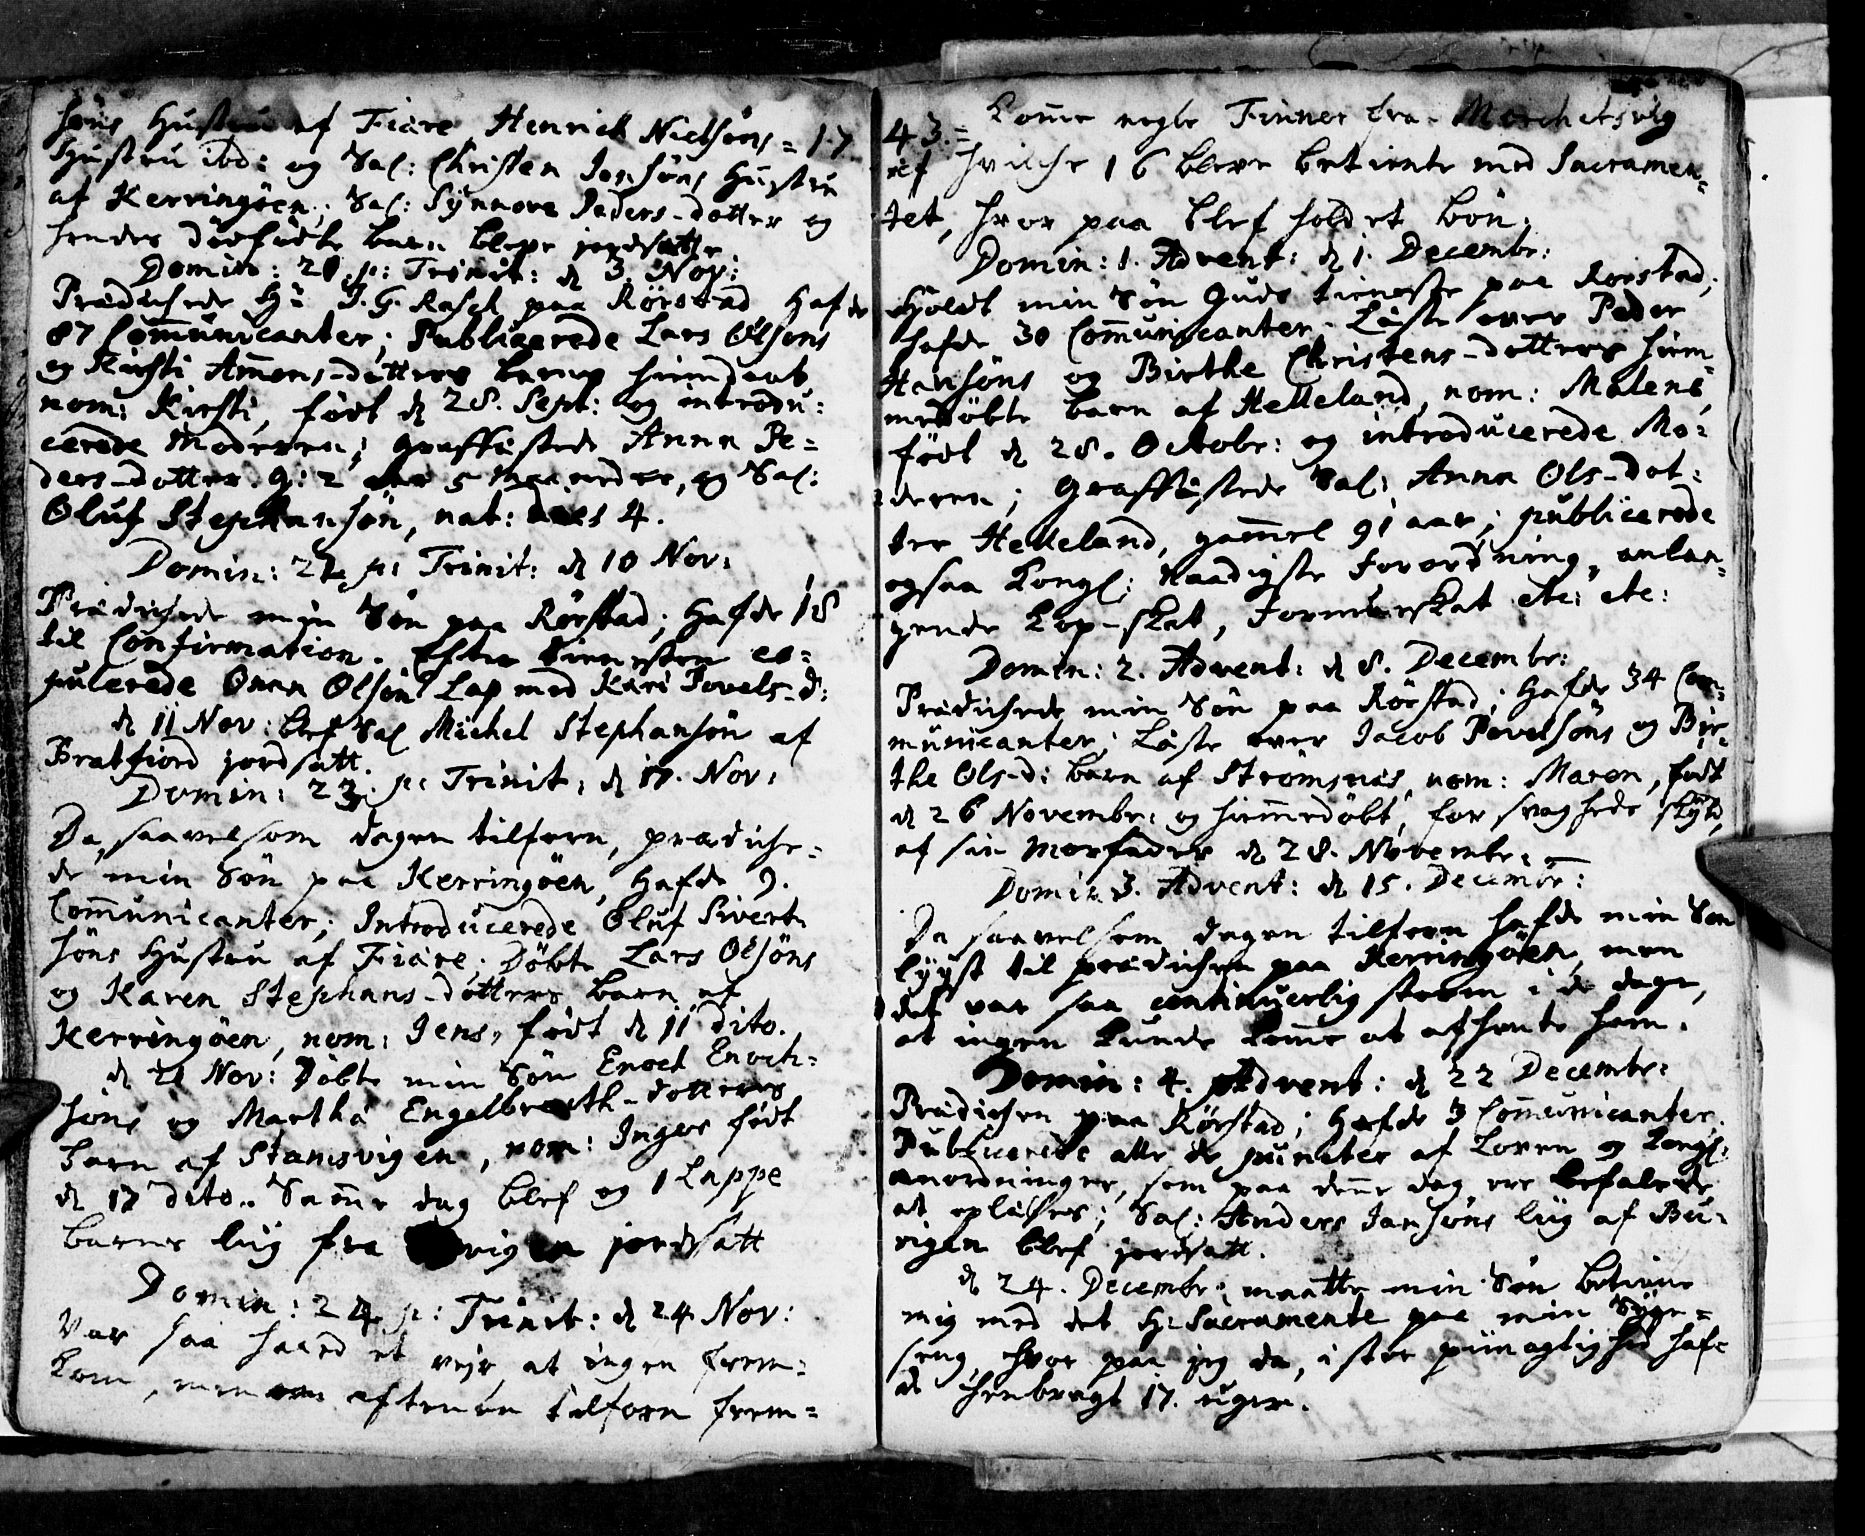 söns Hustru af Fiære, Henrick Nielsöns = 17
Hustru ibd: og Sal: Christen Jensöns Hustru
af Kerringöen; Sal: Synnove Peders-dotter og
hendes dödfödte barn bleve jordsatte.
Domin: 21 p: Trinit: d 3. Nov:
Prædichede Hr J. G. Rasch paa Rörstad hafde
87 Communicanter; Publicerede Lars Olsöns
og Kirsti Amons-dotters barns hiemdaab,
nom: Kirsti, födt d 28. Sept: og introdu:
cerede Moderen; graffæstede Anna Pe=
ders-dotter. g: 2 aar 5 Maaneder, og Sal:
Oluf Stephansön, nat: dies 4.
Domin: 22 p: Trinit: d 10 Nov:
Prædichede min Sön paa Rörstad; hafde 18
til Confirmation. Efter tienesten co=
pulerede Olsön Lap med Kari Povels-d:
d 11 Nov: blef Sal Michel Stephansön af
Bratfiord jordsatt.
Domin: 23. p: Trinit: d 17. Nov:
Da, saavelsom dagen tilforn, prædiche=
de min Sön paa Kerringöen, hafde 9.
Communicanter; Introducerede Oluf Sivert
söns Hustru af Fiære; Döbte Lars Olsöns
og Karen Stephans-dotters barn af
Kerringöen, nom: Jens, födt d 11 dito.
d 21 Nov: Döbte min Sön Enoch Enoch=
söns og Martha Engelbrecth-dotters
barn af Stamsvigen, nom: Inger födt
d 17 dito. Samme dag blef og 1 Lappe
barns liig fra jordsatt
Domin: 24 p: Trinit: d 24 Nov:
Var saa haard et vejr, at ingen frem=
kom, men aftenen tilforn frem=
43.= Komme nogle Finner fra Morchetsvig
af hvilche 16 bleve betiente med Sacramen=
tet, hvor paa blef holdet bön.
Domin: 1. Advent: d 1. Decembr:
Holdt min Sön Guds tieneste paa Rörstad;
hafde 30 Communicanter. Læste over Peder
Hansöns og Birthe Christens-dotters hiem=
medöbte barn af Helleland, nom: Malene,
födt d 28. Octobr: og introducerede Mo=
deren; graffæstede Sal: Anna Ols-dot:
ter Helleland, gammel 91 aar; publicerede
ogsaa Kongl: Naadigste Forordning, anlan=
gende Kop-skat, Formueskat etc: etc:
Domin: 2. Advent: d 8. Decembr:
Prædichede min Sön paa Rörstad; hafde 34 Com=
municanter; Læste over Jacob Povelsöns og Bir=
the Ols-d: barn af Strömsnæs, nom: Maren, födt
d 26 Novembr: og hiemmedöbt, for svagheds skyld,
af sin Morfader d 28. Novembr:
Domin. 3. Advent: d 15. Decembr:
Da saavelsom dagen tilforn hafde min Sön
lyyst til prædichen paa Kerringöen, men
det var saa continuerlig storm i de dage,
at ingen kunde komme at afhente ham.
Domin: 4. Advent: d 22 Decembr:
Prædichen paa Rörstad; hafde 3 Communicanter.
Publicerede alle de puncter af Loven og Kongl:
anordninger, som paa denne dag ere befalede
at oplæses; Sal: Anders Jansöns liig af Bu=
vigen blef jordsatt.
d 24. Decembr: maatte min Sön betiene
mig med det H: Sacramente paa min Syge=
seng, hvor paa jeg da, i stor piinagtighed haf=
de henbragt 17. uger.